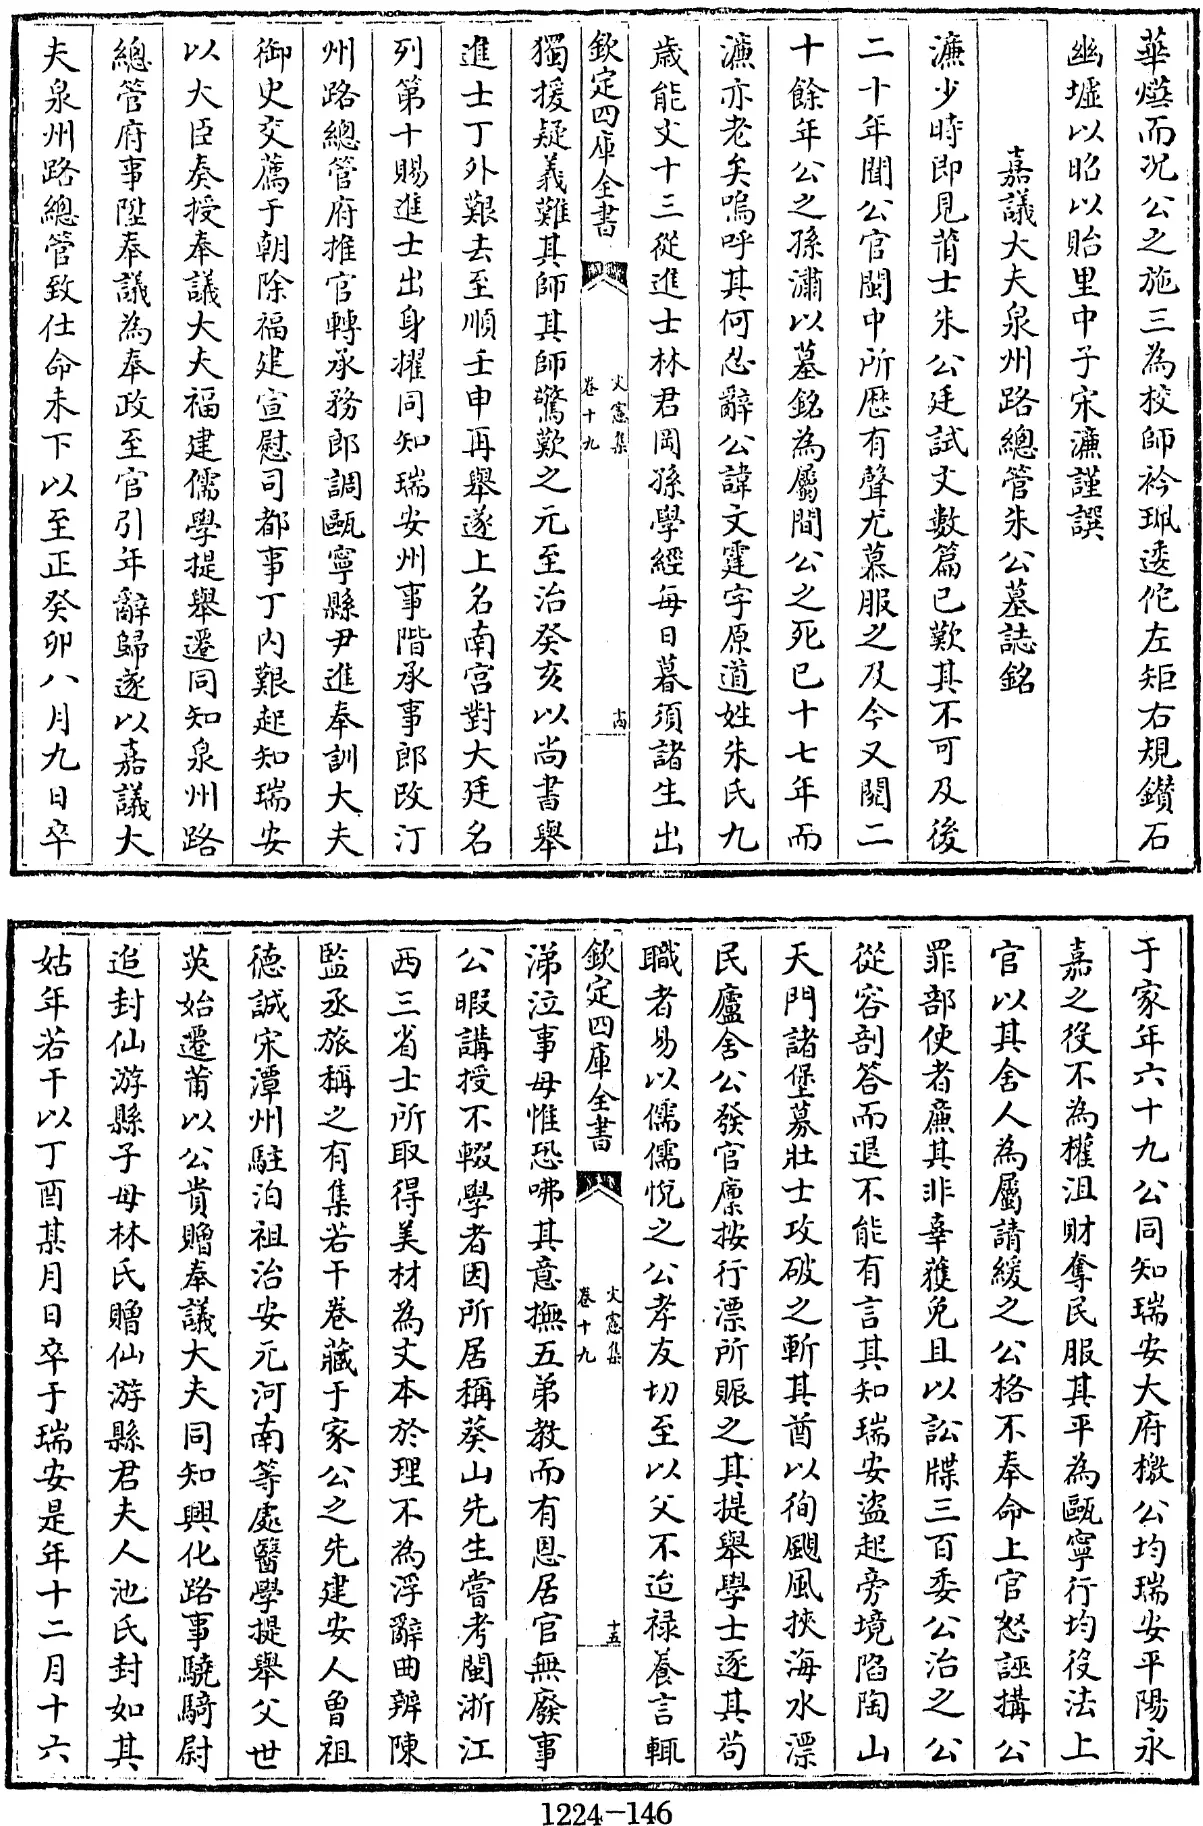 華爕而况公之施三為校師衿珮逶佗左矩右規鑽石
幽墟以昭以貽里中子宋濂謹譔
嘉議大夫泉州路總管朱公墓誌銘
濂少時即見莆士朱公廷試文數篇已歎其不可及後
二十年聞公官閩中所歴有聲尤慕服之及今又閱二
十餘年公之孫潚以墓銘為屬間公之死已十七年而
濂亦老矣嗚呼其何忍辭公諱文霆字原道姓朱氏九
歲能文十三從進士林君岡孫學經每日暮須諸生出
欽定四庫全書
文憲集
卷十九
十四
獨援疑義難其師其師驚歎之元至治癸亥以尚書舉
進士丁外艱去至順壬申再舉遂上名南宮對大廷名
列第十賜進士出身擢同知瑞安州事階承事郎改汀
州路總管府推官轉承務郎調甌寧縣尹進奉訓大夫
御史交薦于朝除福建宣慰司都事丁内艱起知瑞安
以大臣奏授奉議大夫福建儒學提舉遷同知泉州路
總管府事陞奉議為奉政至官引年辭歸遂以嘉議大
夫泉州路總管致仕命未下以至正癸卯八月九日卒
于家年六十九公同知瑞安大府檄公均瑞安平陽永
嘉之役不為權沮財奪民服其平為甌寧行均役法上
官以其舍人為屬請緩之公格不奉命上官怒誣搆公
罪部使者亷其非辜獲免且以訟牒三百委公治之公
從容剖答而退不能有言其知瑞安盗起旁境陷陶山
天門諸堡募壯士攻破之斬其酋以徇颶風挾海水漂
民廬舍公發官廪按行漂所賑之其提舉學士逐其苟
職者易以儒儒悦之公孝友切至以父不迨禄養言輒
欽定四庫全書
文憲集
卷十九
十五
涕泣事母惟恐咈其意撫五弟教而有恩居官無廢事
公暇講授不輟學者因所居稱葵山先生嘗考閩浙江
西三省士所取得美材為文本於理不為浮辭曲辨陳
監丞旅稱之有集若干巻藏于家公之先建安人曾祖
德誠宋潭州駐泊祖治安元河南等處醫學提舉父世
英始遷莆以公貴贈奉議大夫同知興化路事驍騎尉
追封仙游縣子母林氏贈仙游縣君夫人池氏封如其
姑年若干以丁酉某月日卒于瑞安是年十二月十六
1224-146